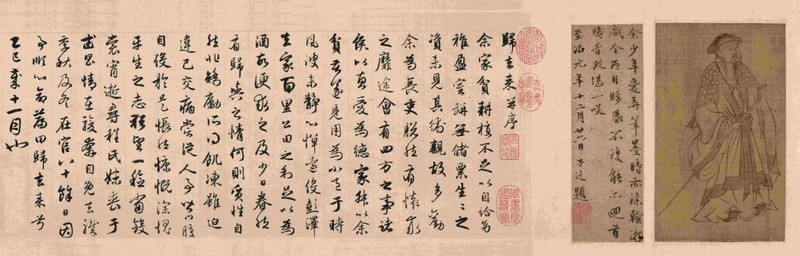 余少年愛弄筆墨時亦染翰游
戲今兩目眵昏不復能回首
疇昔政堪一嘆
至治元年十二月廿六日題
歸去來并序
余家貧耕植不足以自給幼
稚盈室缾無儲粟生生之
資未見其術親故多勸
余為長吏脫然有懷求
之靡途會有四方之事諸
侯以惠愛為德家叔以余
貧苦遂見用為小邑于時
風波未靜心憚遠役彭澤
去家百里公田之利足以為
酒故便求之及少日眷然
有歸與之情何則質性自
然非矯勵所得飢凍雖迫
違己交病嘗從人事皆口腹
自役於是悵然慷慨深愧
平生之志猶望一稔當斂
裳宵逝尋程氏妹喪于
武昌情在駿奔自免去職
秋及冬在官八十餘日因
事順心命篇曰歸去來兮
乙巳歲十一月也